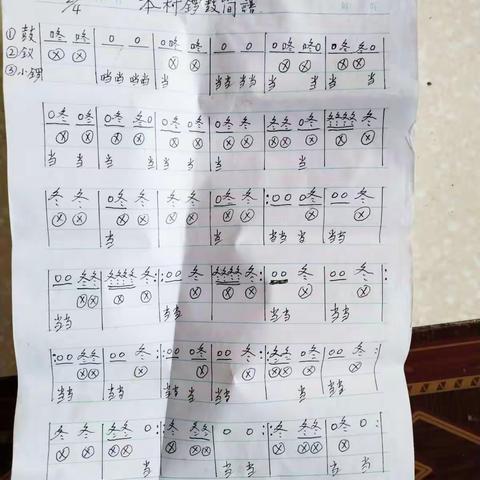 2/4 本村锣鼓简谱
①鼓 咚 咚 | 0 0 | 0咚 咚 | 0 0 | 0咚 咚0 | 0咚 冬0
②钗 ⓧ ⓧ | | ⓧ ⓧ | | ⓧ ⓧ | ⓧ ⓧ
③小锣 | 当当 当当 | 当 | 当当 当当 | 当 当 | 当 当
0冬 0冬 | 0冬 冬0 | 0冬 0冬 | 0冬 冬 | 冬冬 0冬 | 冬冬冬冬 冬
ⓧ ⓧ | ⓧ ⓧ | ⓧ ⓧ | ⓧ ⓧ | ⓧⓧ ⓧ | ⓧ ⓧ
当 | 当 当 | 当 当 | 当 | 当
冬 冬 | 0冬 冬 | 冬 冬 | 0冬 冬 |: 00 0冬 | 00 冬
ⓧ ⓧ | ⓧ ⓧ | ⓧ ⓧ | ⓧ ⓧ | ⓧ | ⓧ
当 | 当 | 当当 当 | 当当
00 冬冬 | 冬冬冬冬 冬 :|: 00 冬 | 冬冬冬冬 冬 :|: 00 冬 | 00 冬 :|
ⓧⓧ | ⓧ ⓧ | ⓧ | ⓧ ⓧ | ⓧ | ⓧ
当当 | 当当 | 当当 | 当当
|: 00 冬冬 | 00 冬 :|: 00 0冬 | 00 冬 :|: 冬冬 0冬 | 00 冬 :|
ⓧⓧ | ⓧ | ⓧ | ⓧ | ⓧⓧ ⓧ | ⓧ
当当 | 当当 | 当当 当 | 当当 | 当 | 当当
冬 冬 | 冬冬 0 :|: 冬 冬冬 | 0 0 :|: 冬 冬冬 | 0冬 0 :|
ⓧ ⓧ | ⓧⓧ | ⓧ ⓧⓧ | | ⓧ ⓧⓧ | ⓧ
当 | 当 当 | 当 当